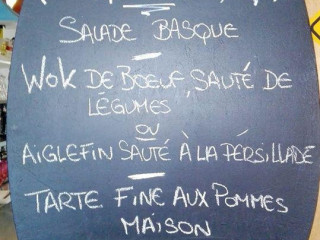 SALADE BASQUE
WOK DE BOEUF, SAUTÉ DE
LÉGUMES
OU
AIGLEFIN SAUTÉ À LA PÉRSILLADE
TARTE FINE AUX POMMES
MAISON